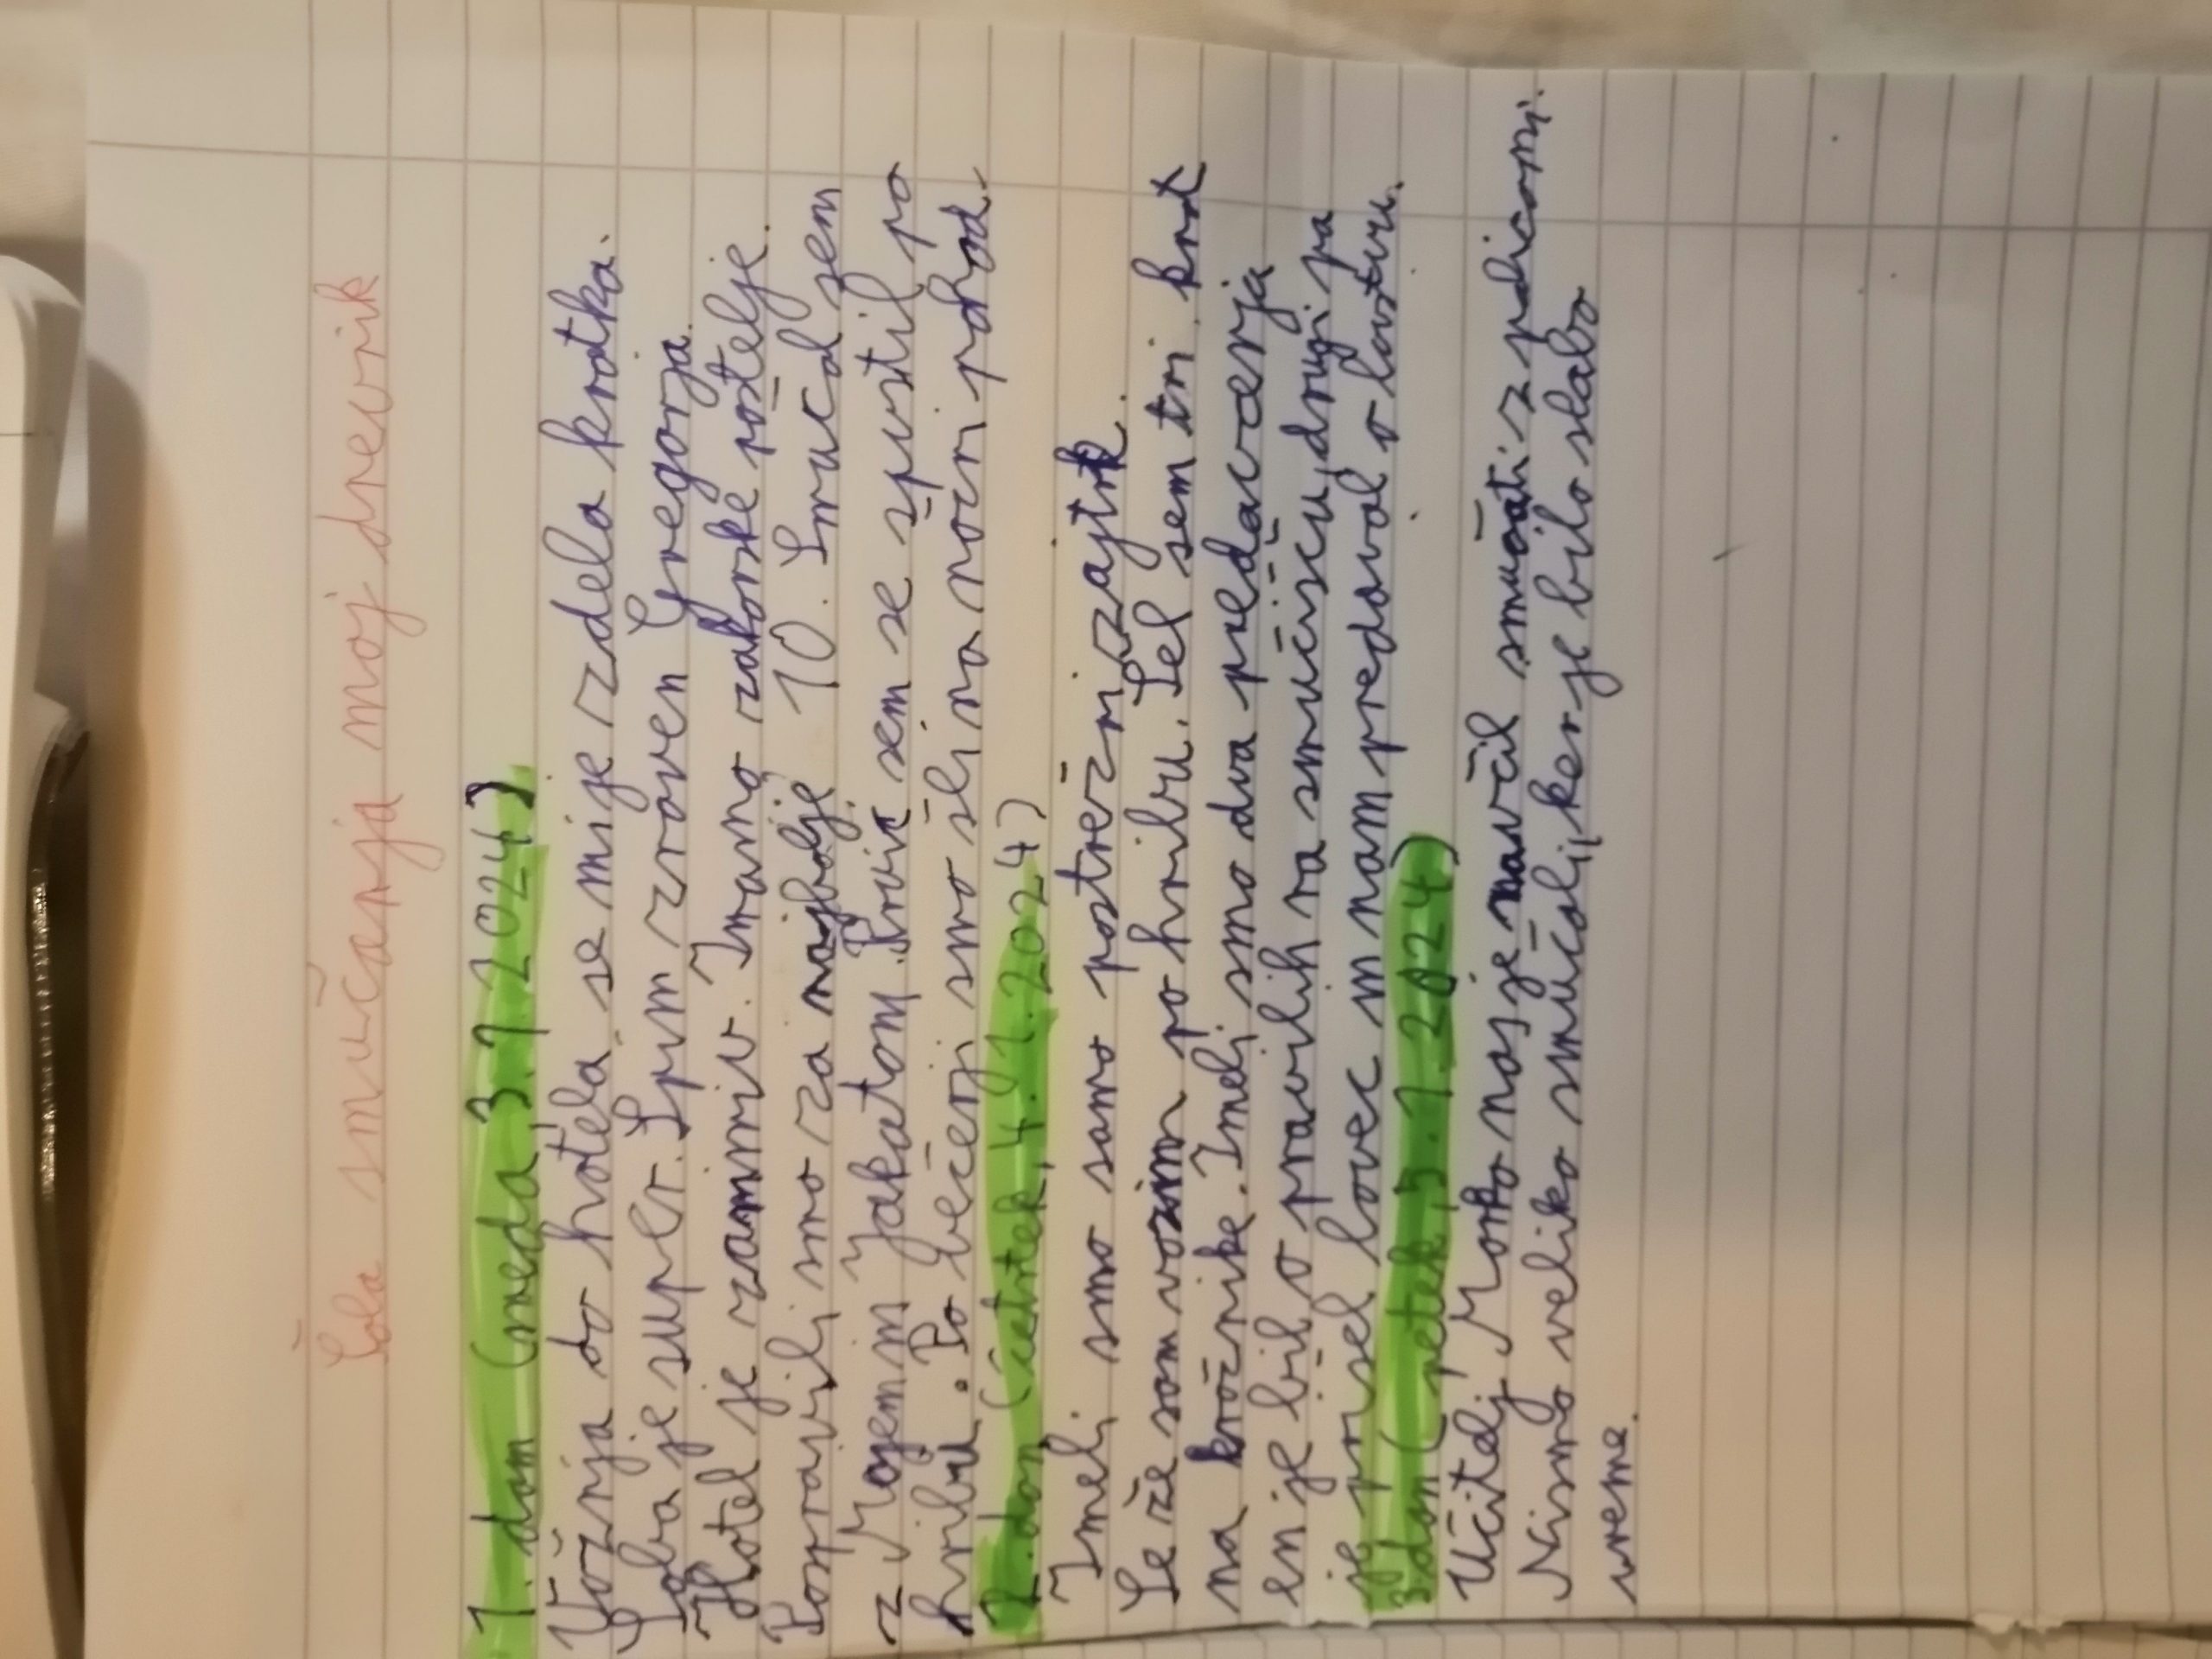 Šola smučanja moj dnevnik
1. dan (sreda, 3. 1. 2024)
Vožnja do hotela se mi je zdela kratka.
Soba je super. Spim zraven Gregorja.
Hotel je zanimiv. Imamo zakonske postelje.
Popravili smo za najbolje 10. Smučal sem
z Majem in Jakatom. Prvič sem se spustil po
hribu. Po večerji smo šli na nočni pohod.
2. dan (četrtek, 4. 1. 2024)
Imeli smo samo postrežni zajtrk.
Se že sam vozim po hribu. Šel sem tri krat
na krožnike. Imeli smo dva predavanja
en je bil o pravilih na smučišču, drugi pa
je prišel lovec in nam predaval o lovstvu.
3. dan (petek, 5. 1. 2024)
Učitelj Marko nas je naučil smučati s palicami.
Nismo veliko smučali, ker je bilo slabo
vreme.